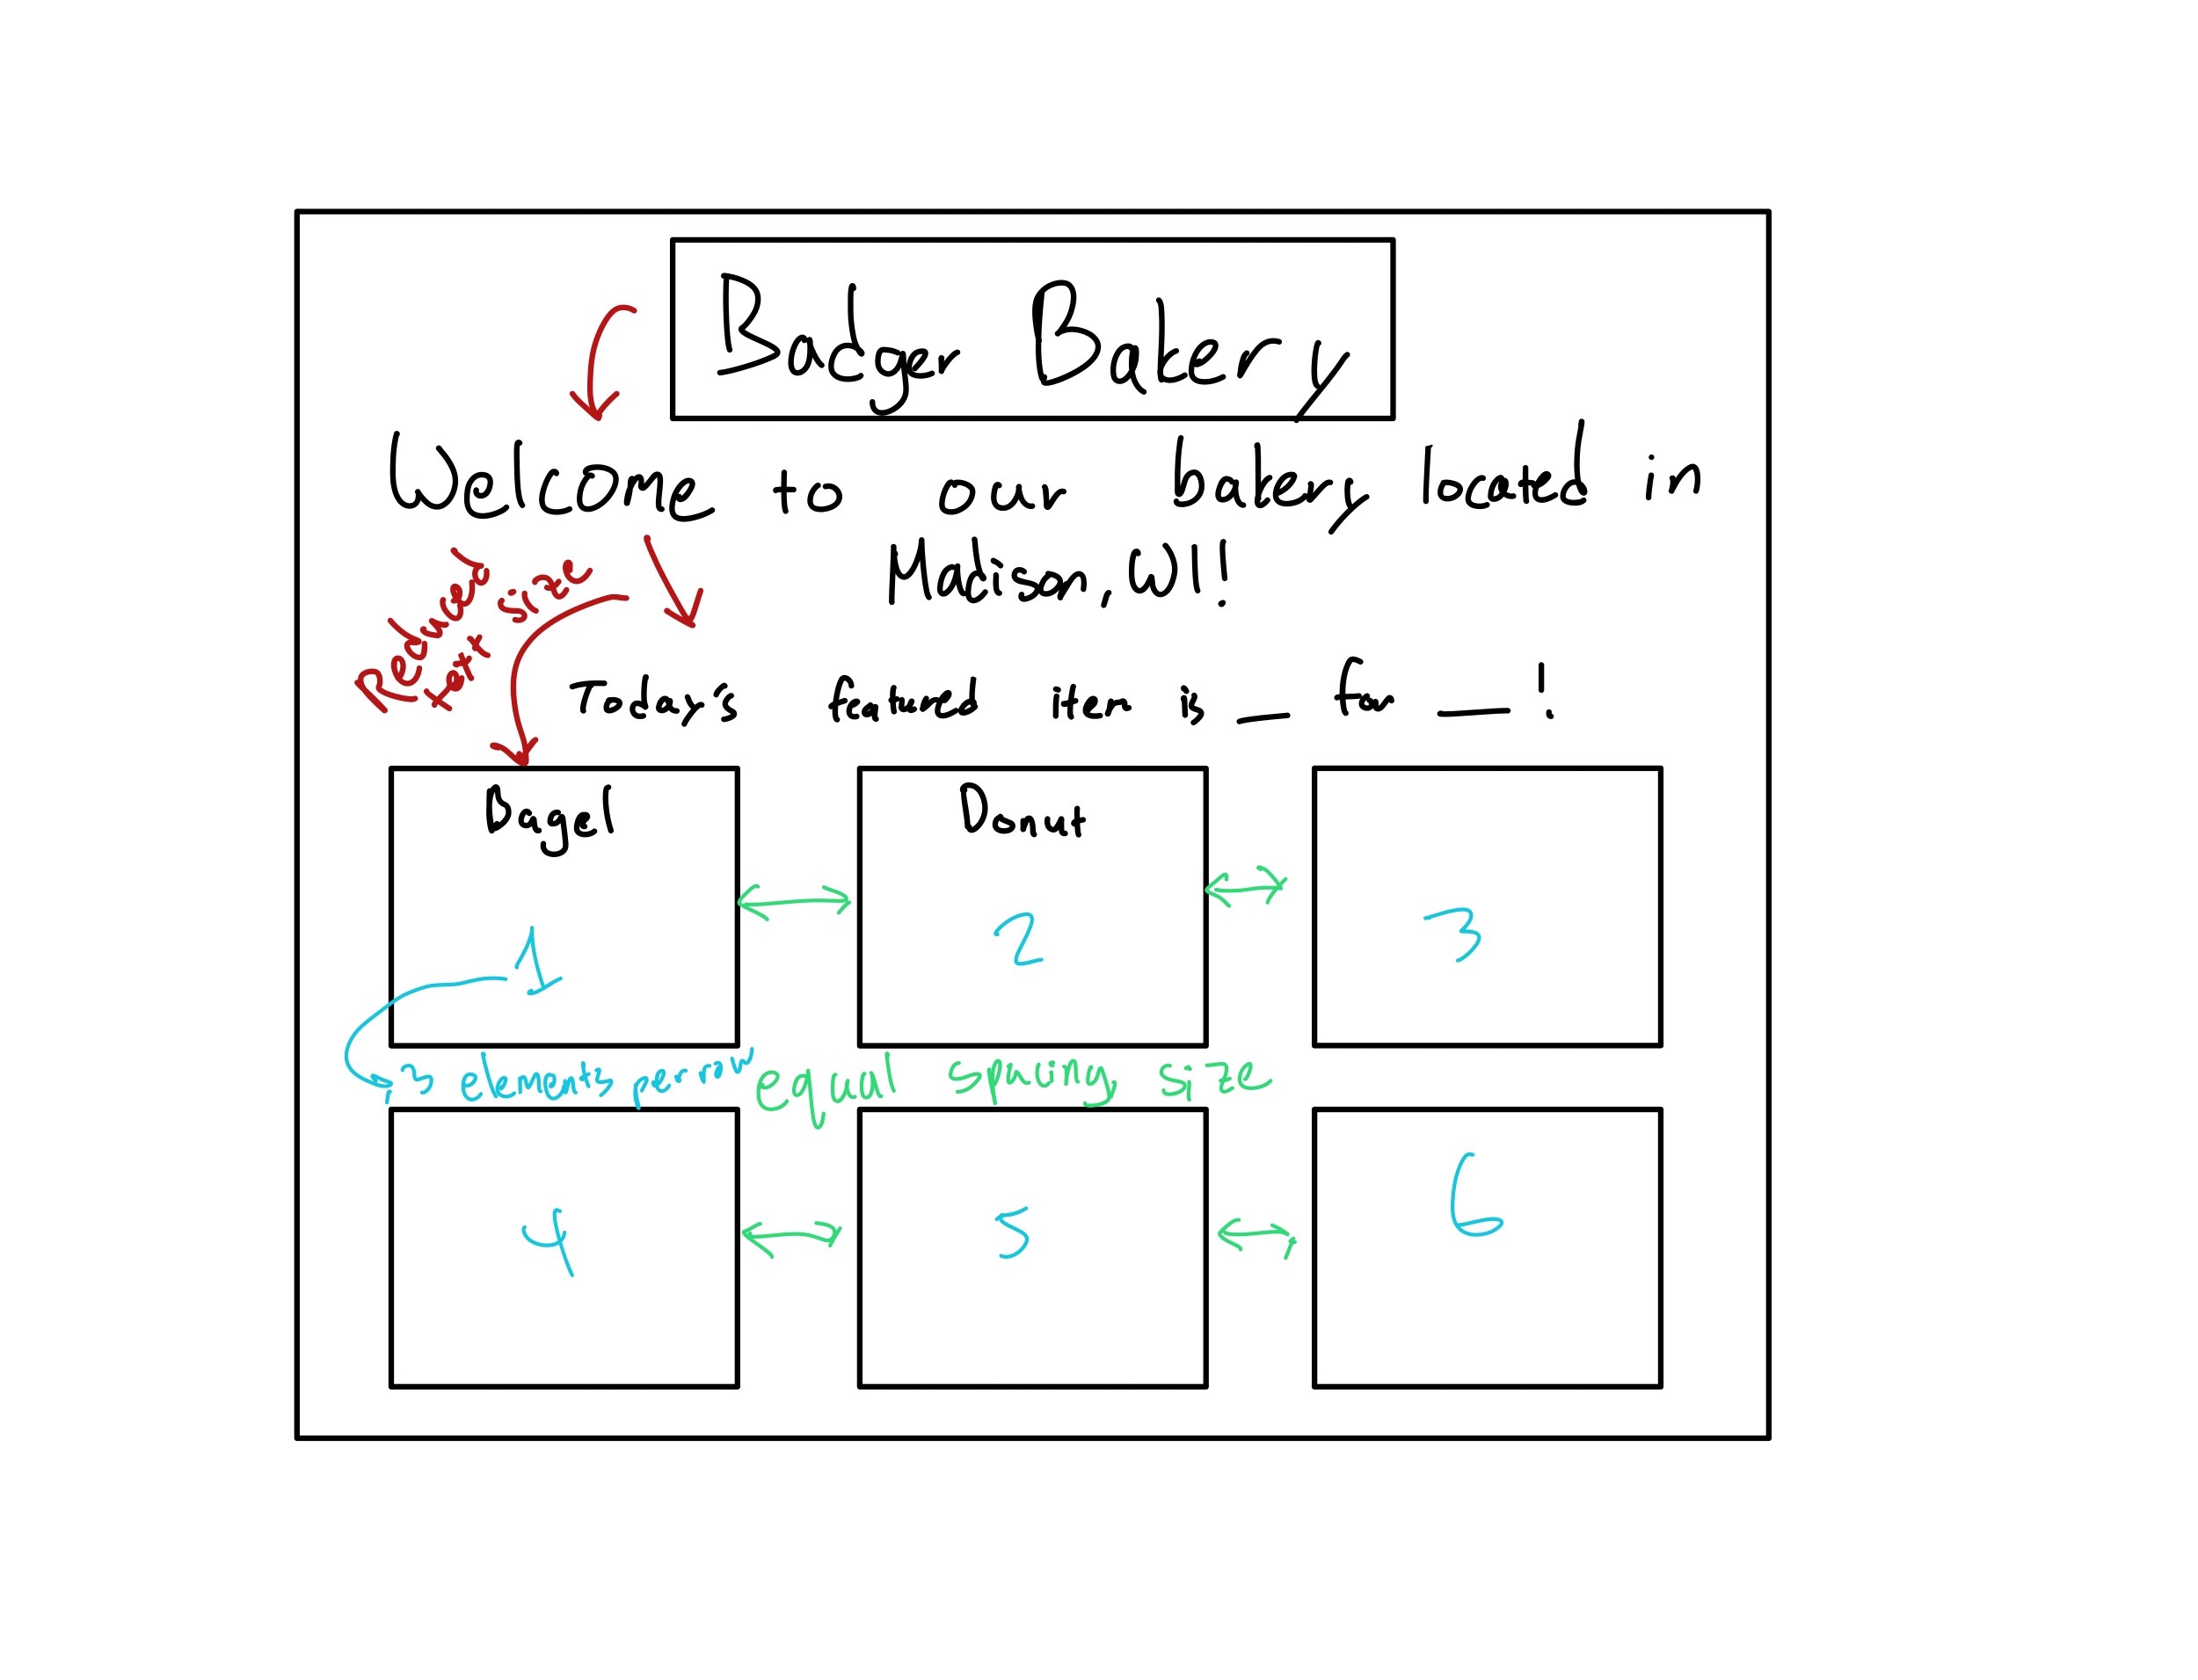 Badger Bakery
Welcome to our bakery located in
Madison, WI!
Reduced
text size
Today's featured item is __ from __!
Bagel
Donut
1
2
3
3 elements per row
equal spacing size
4
5
6